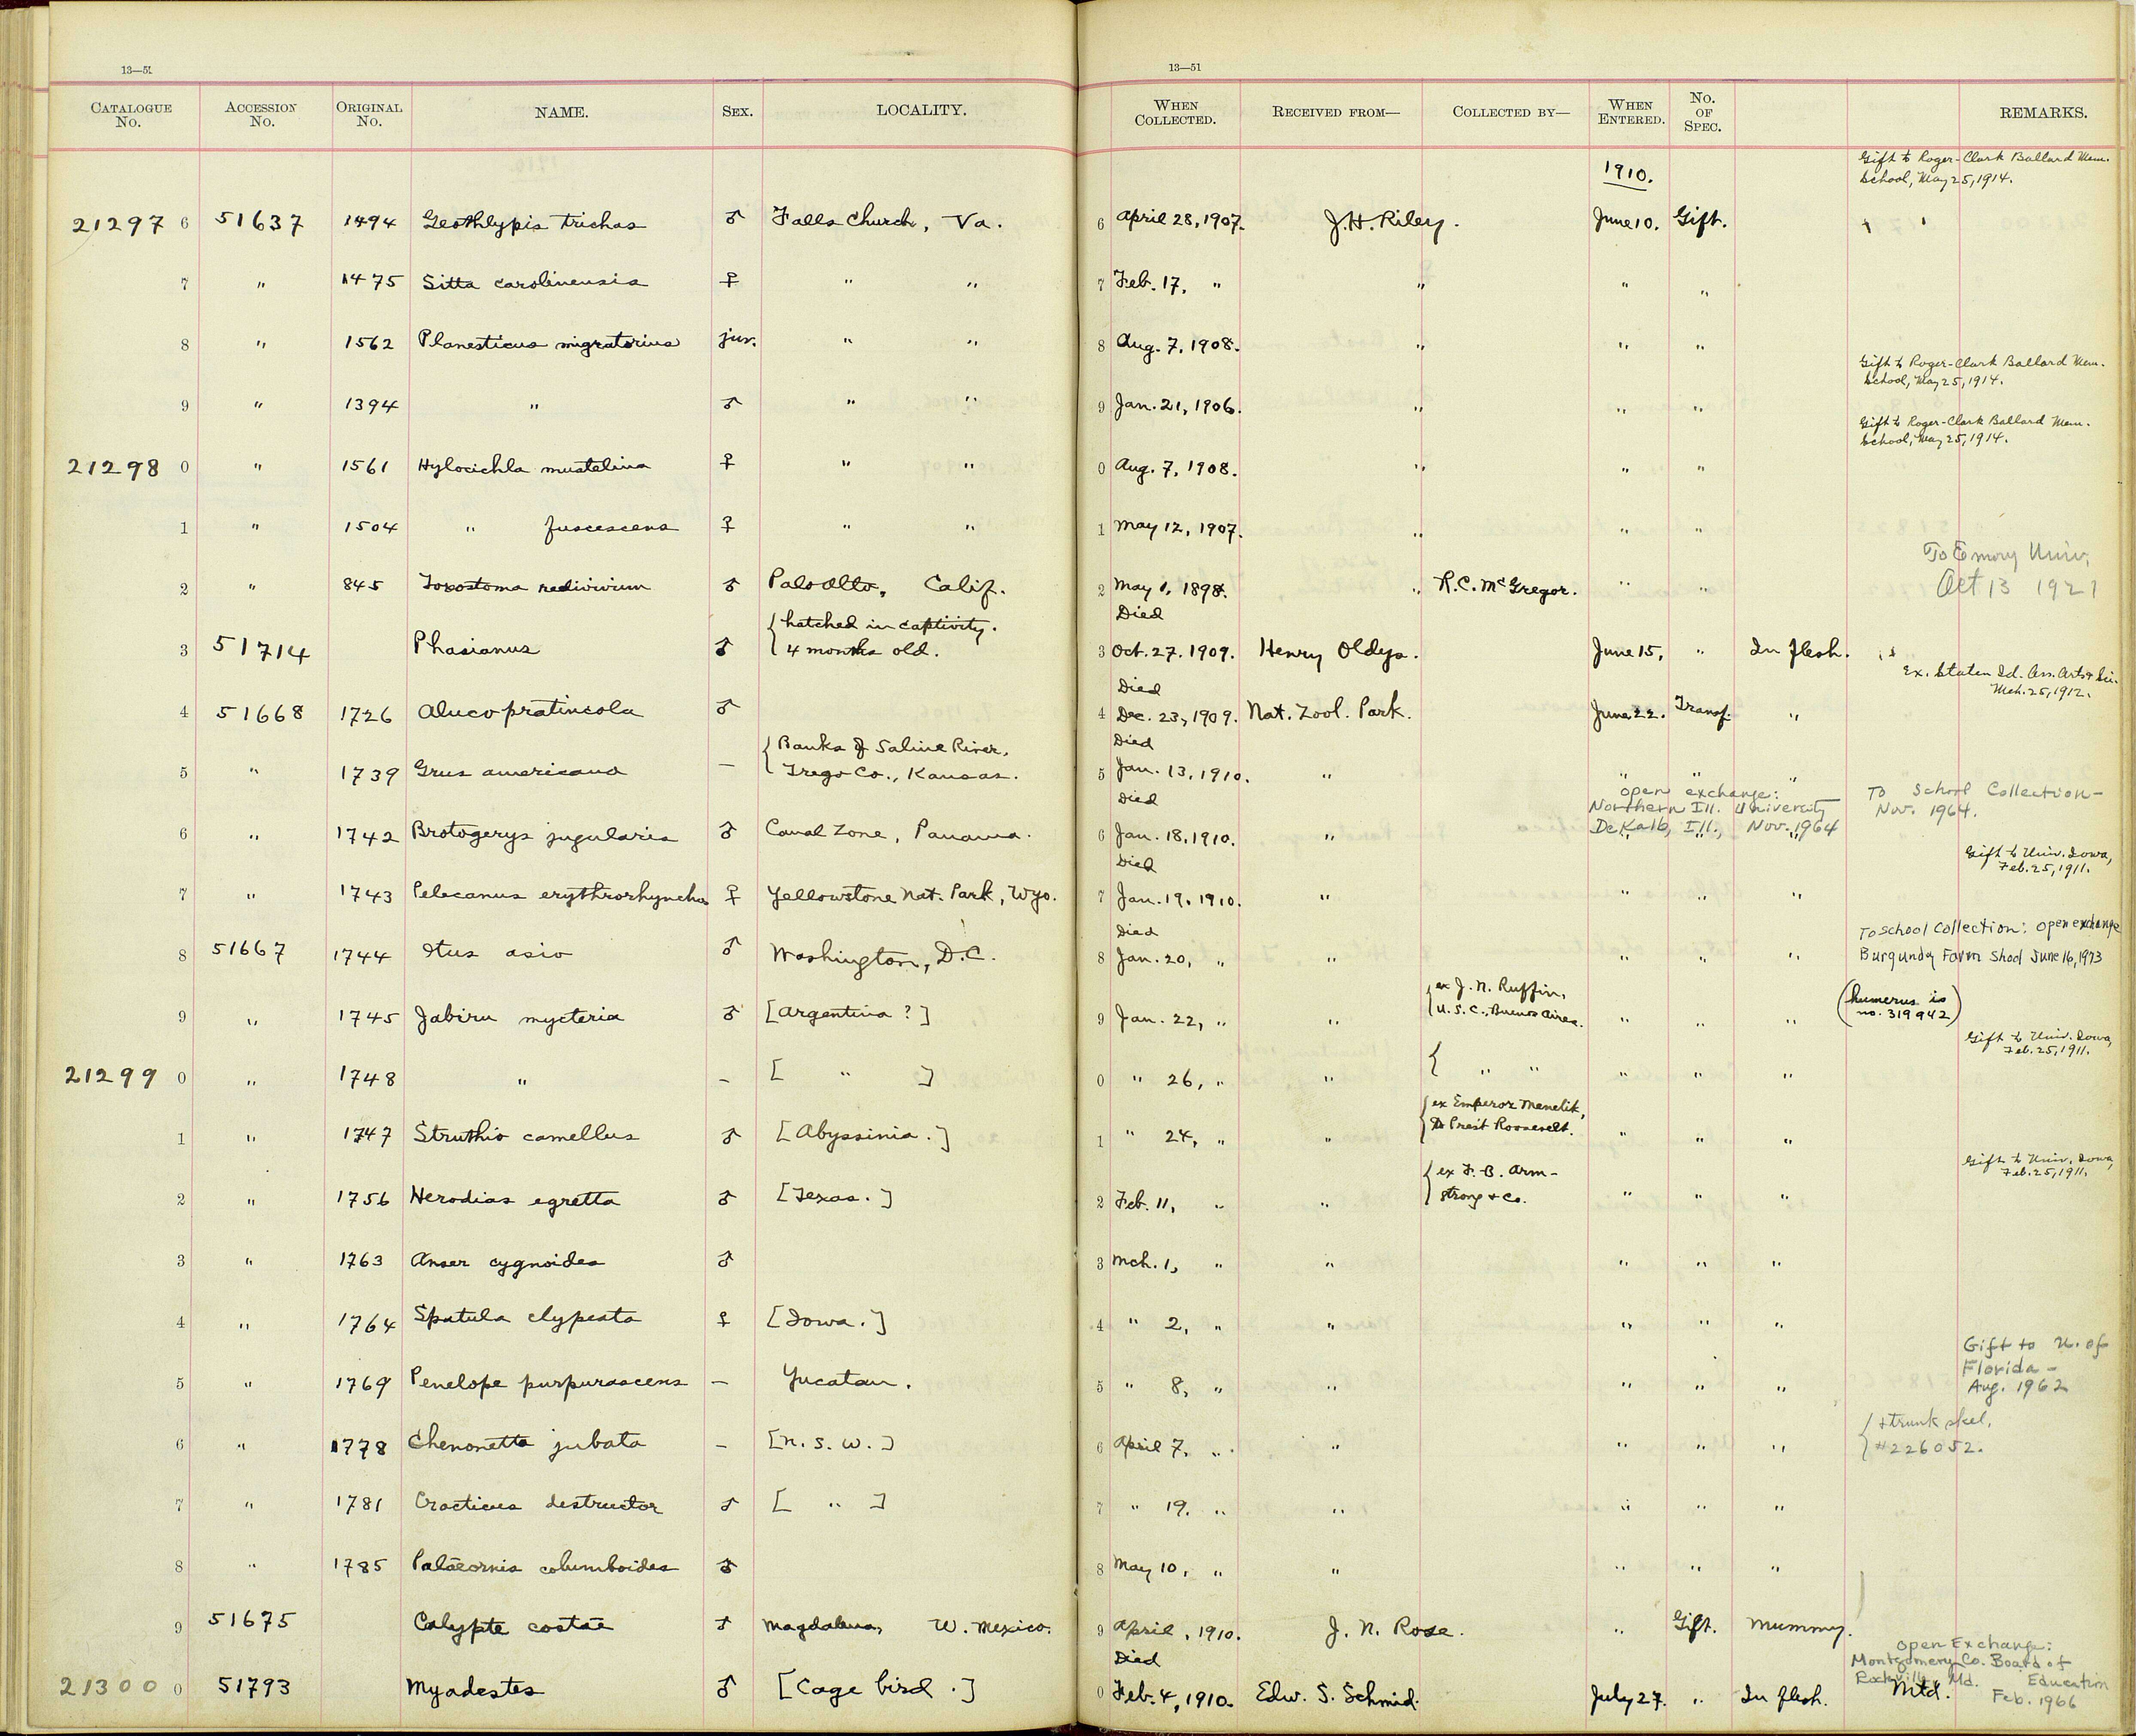 13—51
13—51
CATALOGUE No. ACCESSION No. ORIGINAL No. NAME. SEX. LOCALITY. WHEN COLLECTED. RECEIVED FROM— COLLECTED BY— WHEN ENTERED. No. OF SPEC. REMARKS.
1910. Gift to Roger-Clark Ballard Mem.
School, May 25, 1914.
21297 6 51637 1494 Geothlypis trichas ♂ Falls Church, Va. 6 April 28, 1907. J. H. Riley. June 10. Gift.
7 " 1475 Sitta carolinensis ♀ " " 7 Feb. 17, " " " "
8 " 1562 Planesticus migratorius juv. " " 8 Aug. 7, 1908. " " "
Gift to Roger-Clark Ballard Mem.
School, May 25, 1914.
9 " 1394 " ♂ " " 9 Jan. 21, 1906. " " "
Gift to Roger-Clark Ballard Mem.
School, May 25, 1914.
21298 0 " 1561 Hylocichla mustelina ♀ " " 0 Aug. 7, 1908. " " "
1 " 1504 " fuscescens ♀ " " 1 May 12, 1907. " " "
To Emory Univ.
Oct 13 1921
2 " 845 Toxostoma redivivum ♂ Palo Alto, Calif. 2 May 1, 1898. " R. C. McGregor. " "
{ hatched in captivity. Died
3 51714 Phasianus ♂ 4 months old. 3 Oct. 27. 1909. Henry Oldys. June 15, " In flesh.
Died Ex. Staten Id. Ass. Arts & Sci.
Mch. 25, 1912.
4 51668 1726 Aluco pratincola ♂ 4 Dec. 23, 1909. Nat. Zool. Park. June 22. Transf. "
{ Banks of Saline River, Died
5 " 1739 Grus americana — Trego Co., Kansas. 5 Jan. 13, 1910. " " " "
Died open exchange: To School Collection—
Northern Ill. University Nov. 1964.
6 " 1742 Brotogerys jugularis ♂ Canal Zone, Panama. 6 Jan. 18, 1910. " " " "
DeKalb, Ill., Nov. 1964
Died Gift to Univ. Iowa,
Feb. 25, 1911.
7 " 1743 Pelecanus erythrorhynchos ♀ Yellowstone Nat. Park, Wyo. 7 Jan. 19, 1910. " " " "
Died To school Collection: open exchange
8 51667 1744 Otus asio ♂ Washington, D.C. 8 Jan. 20, " " " " " Burgundy Farm Shool June 16, 1973
{ ex J. N. Ruffin, (humerus is
9 " 1745 Jabiru mycteria ♂ [Argentina ?] 9 Jan. 22, " " U. S. C., Buenos Aires. " " " no. 319942)
Gift to Univ. Iowa,
Feb. 25, 1911.
21299 0 " 1748 " – [ " ] 0 " 26, " " { " " " " "
{ ex Emperor Menelik,
1 " 1747 Struthio camellus ♂ [Abyssinia.] 1 " 24, " " to Prest Roosevelt. " " "
{ ex F. B. Arm- Gift to Univ. Iowa,
Feb. 25, 1911.
2 " 1756 Herodias egretta ♂ [Texas.] 2 Feb. 11, " " strong & Co. " " "
3 " 1763 Anser cygnoides ♂ 3 Mch. 1, " " " " "
4 " 1764 Spatula clypeata ♀ [Iowa.] 4 " 2, " " " " "
Gift to U. of
Florida —
5 " 1769 Penelope purpurascens — Yucatan. 5 " 8, " " " " " Aug. 1962
{ + trunk skel.
6 " 1778 Chenonetta jubata – [N. S. W.] 6 April 7, " " " " " # 226052.
7 " 1781 Cracticus destructor ♂ [ " ] 7 " 19. " " " " "
8 " 1785 Palæornis columboides ♂ 8 May 10, " " " " "
9 51675 Calypte costæ ♂ Magdalena, W. Mexico. 9 April, 1910. J. N. Rose. " Gift. Mummy.
Died open Exchange:
Montgomery Co. Board of
Rockville, Md. Education
21300 0 51793 Myadestes ♂ [Cage bird.] 0 Feb. 4, 1910. Edw. S. Schmid. July 27. " In flesh. Mtd.
Feb. 1966